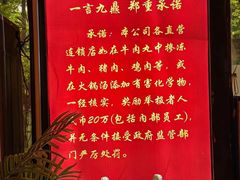 一言九鼎 郑重承诺
承诺：本公司各直营
连锁店如在牛肉九中掺
牛肉、猪肉、鸡肉等，或
在火锅汤添加有害化学物，
一经核实，奖励举报者人
币20万(包括内部员工)，
并无条件接受政府监管部
门严厉处罚。